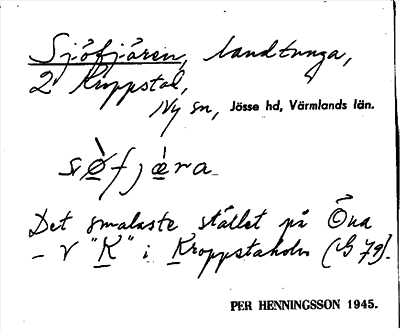 Sjöfjären, landtunga,
2 Kroppstal,
Ny sn, Jösse hd, Värmlands län.
sø̀fjæ̀ra
Det smalaste stället på Öna
– V "K" i Kroppstaholm (G 79).
PER HENNINGSSON 1945.